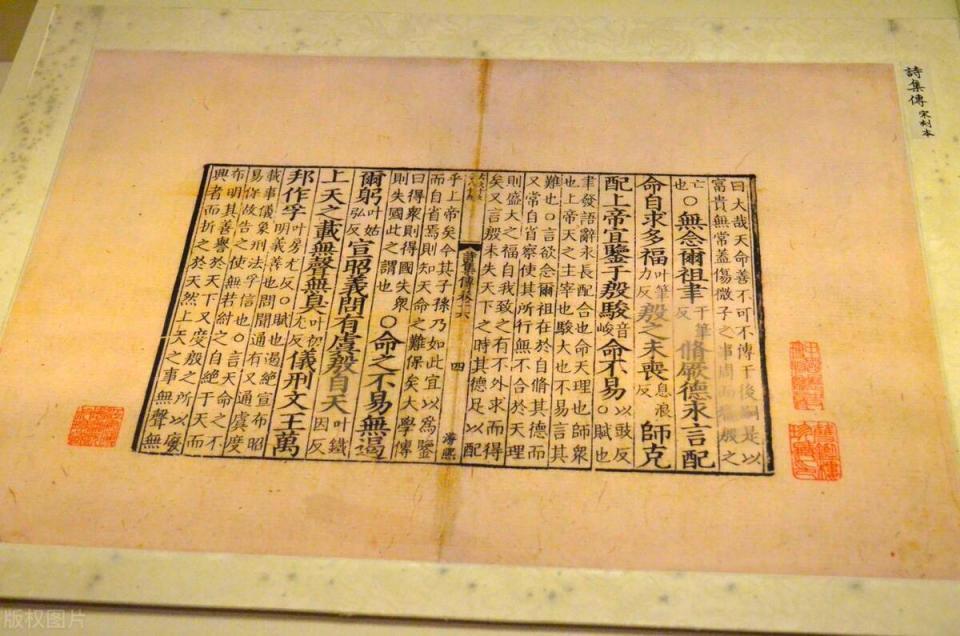 詩集傳 宋刻本
曰大哉天命善不可不傳于後嗣是以
富貴無常蓋傷微子之事周而痛殷之
亡也○無念爾祖聿于筆反脩厥德永言配
命自求多福叶筆力反殷之未喪息浪反師克
配上帝宜鑒于殷駿音峻命不易以豉反○賦也
聿發語辭永長配合也命天理也師衆
也上帝天之主宰也駿大也不易言其
難也○言欲念爾祖在於自脩其德而
又常自省察使其所行無不合於天理
則盛大之福自我致之有不外求而得
矣又言殷未失天下之時其德足以配
詩集傳卷十六 四
乎上帝矣今其子孫乃如此宜以為鑒
而自省焉則知天命之難保矣大學傳
曰得衆則得國失衆
則失國此之謂也○命之不易無遏
爾躬叶姑弘反宣昭義問有虞殷自天叶鐵因反
上天之載無聲無臭叶初尤反儀刑文王萬
邦作孚叶房尤反○賦也遏絕宣布昭
明義善也問聞通有又通虞度
載事儀象刑法孚信也○言天命之不
易保故告之使無若紂之自絕于天而
布明其善譽於天下又度殷之所以廢
興者而折之於天然上天之事無聲無
版权图片